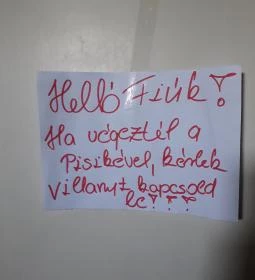 Helló Fiúk!
Ha végeztél a
Pisikével, kérlek
villanyt kapcsold
le!!!